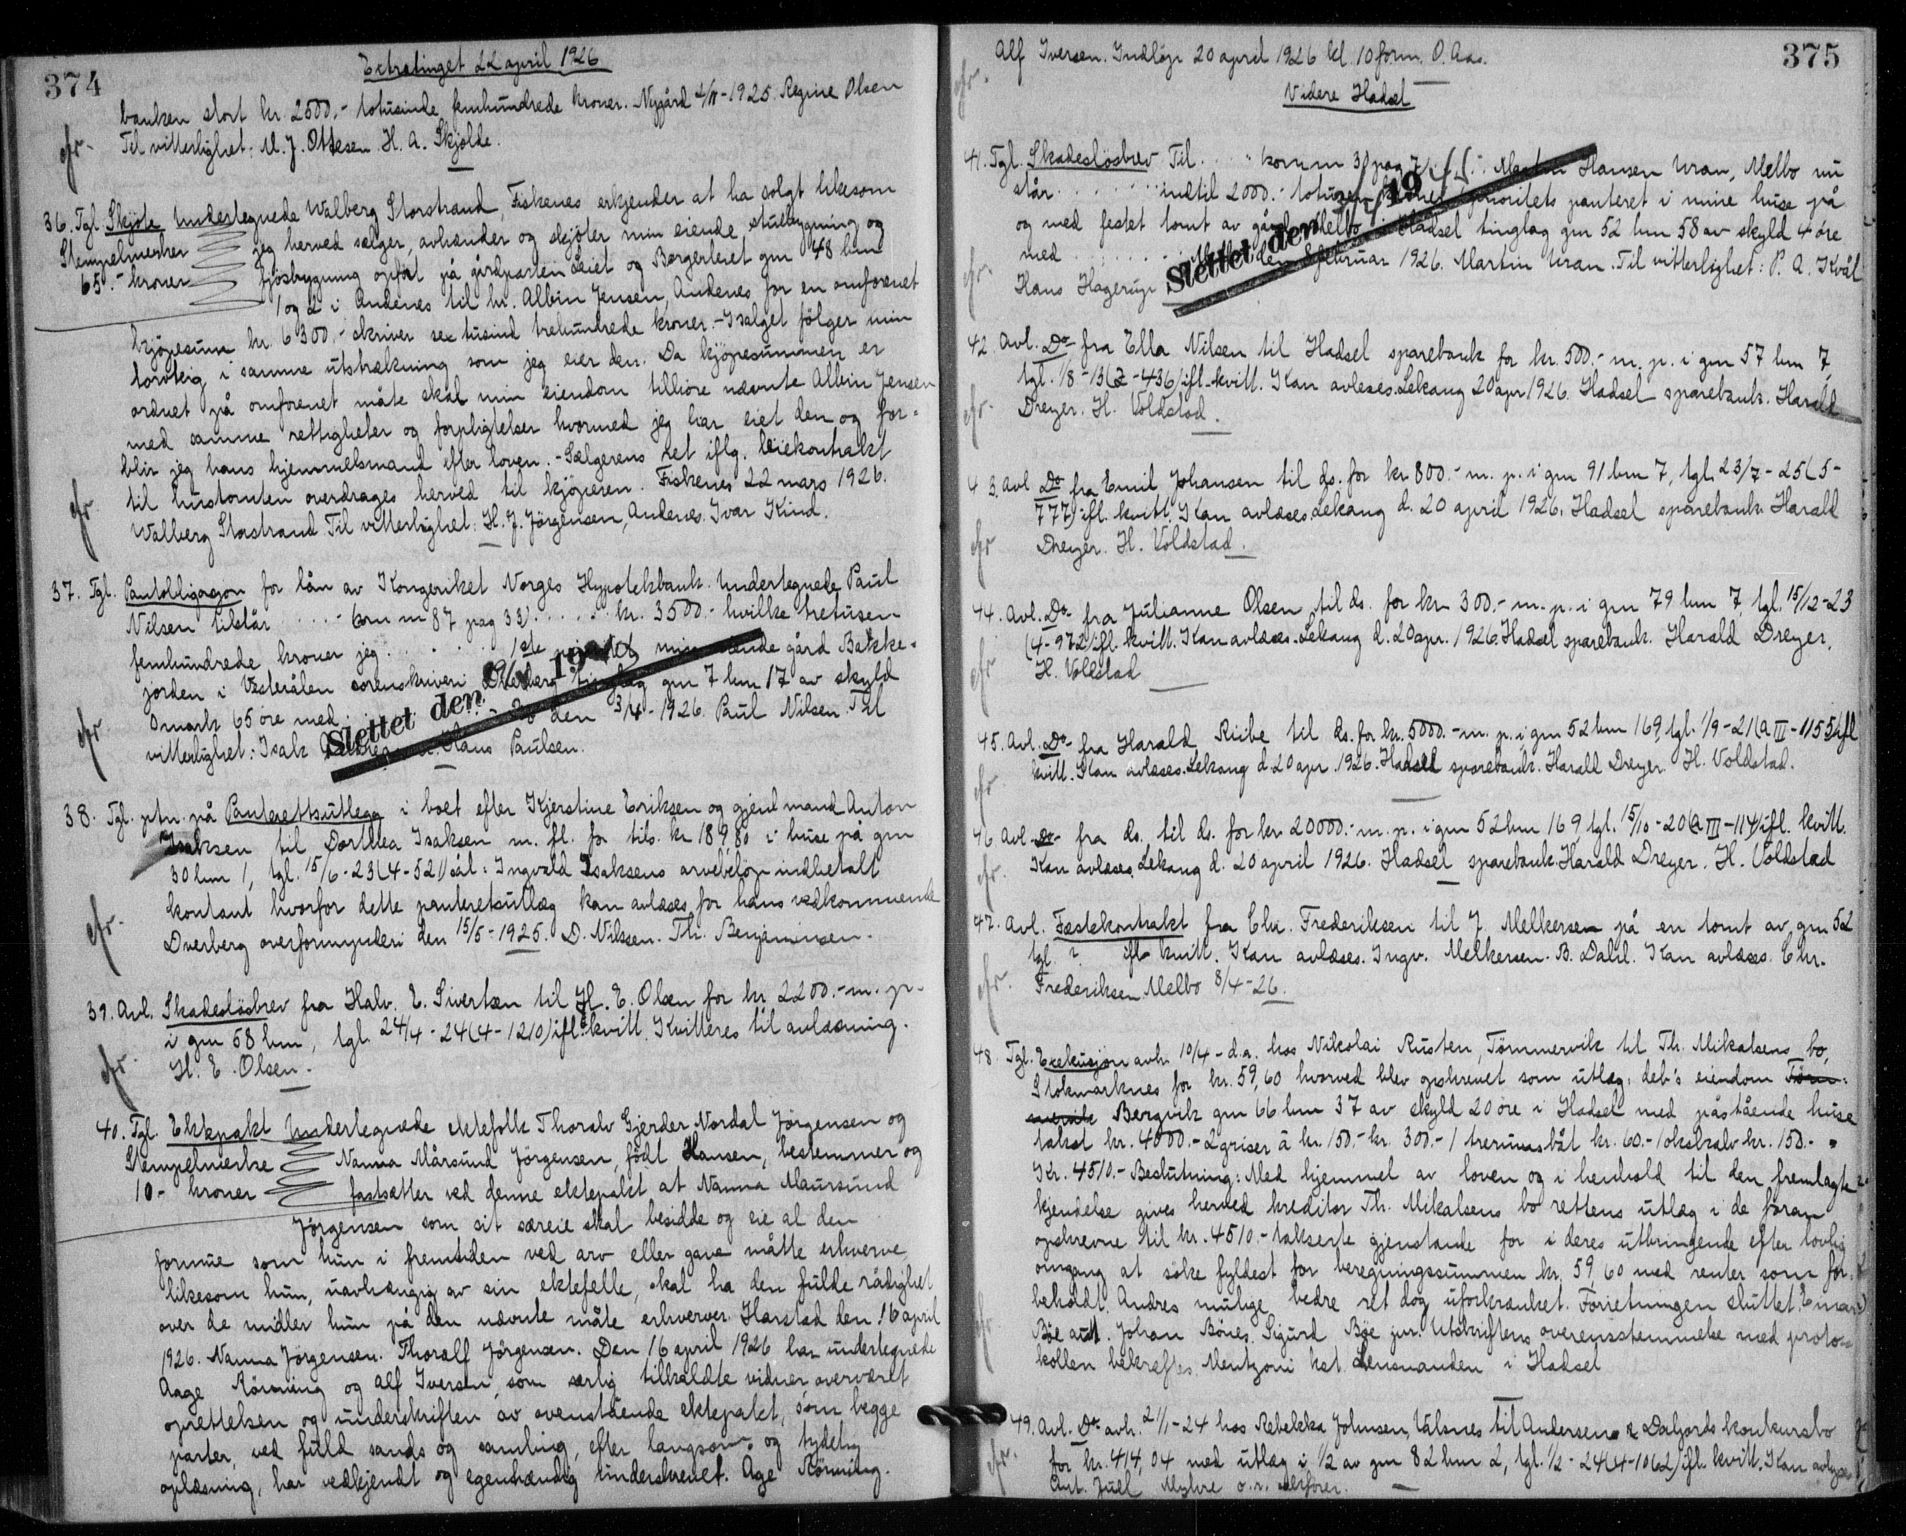 374
Extratinget 22 april 1926
banken stort kr. 2500,- totusinde femhundrede kroner. Nygård 4/11-1925. Regine Olsen
cfr. Til vitterlighet: M. J. Ottesen. H. A. Skjolde.
36. Tgl. Skjöte Undertegnede Walberg Storstrand, Fiskenes erkjender at ha solgt likesom
Stempelmerker jeg herved sælger, avhænder og skjöter min eiende stuebygning og
65.- kroner fjösbygning opfört på gårdparten Leiet og Borgerleiet gnr 48 bnr
1 og 2 i Andenes til hr. Albin Jensen, Andenes for en omforenet
kjöpesum kr. 6300,- skriver sex tusind trehundrede kroner.- I salget fölger min
torvteig i samme utstrækning som jeg eier den. Da kjöpesummen er
ordnet på omforenet måte skal min eiendom tilhöre nævnte Albin Jensen
med samme rettigheter og forpligtelser hvormed jeg har eiet den og for-
blir jeg hans hjemmelsmand efter loven.- Sælgerens ret iflg. leiekontrakt
cfr til hustomten overdrages herved til kjöperen. Fiskenes 22 mars 1926.
Walberg Storstrand Til vitterlighet: H. J. Jörgensen, Andenes. Ivar Kind.
37. Tgl. Pantobligasjon for lån av Kongeriket Norges Hypotekbank. Undertegnede Paul
Nilsen tilstår . . . . - (som nr 87 pag 33) . . . . . kr. 3500.- hvilke tretusen
femhundrede kroner jeg . . . . . . 1ste prioritet min eiende gård Bakke-
jorden i Vesterålen sorenskriveri Dverberg tinglag gnr 7 bnr 17 av skyld
0 mark 65 öre med . . . den 3/4-1926. Paul Nilsen. Til
cfr vitterlighet: Isak Hans Paulsen.
Slettet den 19
38. Tgl. ptn. på Panterettsutlegg i boet efter Kjerstine Eriksen og gjenl. mand Anton
Isaksen til Dorthea Isaksen m. fl. for tils. kr 189,80 i huse på gnr
30 bnr 1, tgl. 15/6-23 (4-521) sål: Ingvald Isaksens arvebelöp indbetalt
kontant hvorfor dette panteretsutlæg kan avlæses for hans vedkommende
cfr. Dverberg overformynderi den 15/5-1925. D. Nilssen. Th. Benjaminsen.
39. Avl. Skadeslösbrev fra Halv. E. Sivertsen til H. E. Olsen for kr. 2200.- m. p.
i gnr 58 bnr , tgl. 24/4-24 (4-1210) ifl. kvitt. Kvitteres til avlæsning.
cfr. H. E. Olsen.
40. Tgl. Ektepakt Undertegnede ektefolk Thoralv Gjerder Nordal Jörgensen og
Stempelmerke Nanna Mårsund Jörgensen, födt Hansen, bestemmer og
10.- kroner fastsætter ved denne ektepakt at Nanna Maursund
Jörgensen som sit særeie skal besidde og eie al den
formue som hun i fremtiden ved arv eller gave måtte erhverve
likesom hun, uavhængig av sin ektefelle, skal ha den fulde rådighet
over de midler hun på den nævnte måte erhverver. Harstad den 16 april
1926. Nanna Jörgensen. Thoralf Jörgensen. Den 16 april 1926 har undertegnede
Aage Rönning og Alf Iversen, som særlig tilkaldte vidner overværet
oprettelsen og underskriften av ovenstående ektepakt, som begge
parter, ved fuld sands og samling, efter langsom og tydelig
oplæsning, har vedkjendt og egenhændig underskrevet. Åge Rönning.
375
cfr. Alf Iversen. Indlöp 20 april 1926 kl. 10 form. O. Aas.
Videre Hadsel
41. Tgl. Skadeslösbrev Til . . . (som nr 3 pag 7) . . Martin Hansen Uran, Melbo nu
står . . . . . . indtil 2000.- totusen kroner prioritets panteret i mine huse på
og med festet tomt av gård Melbo i Hadsel tinglag gnr 52 bnr 58 av skyld 4 öre
cfr. med . . . . . . Melbo den februar 1926. Martin Uran. Til vitterlighet: P. A. Kvål
Hans Hagerup
Slettet den 19
42. Avl. Do fra Ella Nilsen til Hadsel sparebank for kr. 500.- m. p. i gnr 57 bnr 7,
tgl. 1/8-13 (Z-436) ifl. kvitt. Kan avleses. Lekang 20 apr. 1926. Hadsel sparebank. Harald
cfr. Dreyer. H. Voldstad.
43. Avl. Do fra Emil Johansen til ds. for kr 800.- m. p. i gnr 91 bnr 7, tgl. 23/7-25 (5-
777) ifl. kvitt. Kan avlæses. Lekang d. 20 april 1926. Hadsel sparebank. Harald
cfr Dreyer. H. Voldstad.
44. Avl. Do fra Julianne Olsen til ds. for kr 300.- m. p. i gnr 79 bnr 7, tgl. 15/12-23
(4-972) ifl. kvitt. Kan avlæses. Lekang d. 20 apr. 1926. Hadsel sparebank. Harald Dreyer.
cfr H. Voldstad
45. Avl. Do fra Harald Riibe til ds. for kr. 5000.- m. p. i gnr 52 bnr 169, tgl. 1/9-21 (a III-1155) ifl
cfr kvitt. Kan avlæses. Lekang d 20 apr. 1926. Hadsel sparebank. Harald Dreyer. H. Voldstad.
46. Avl. Do fra ds. til ds. for kr 20000.- m. p. i gnr 52 bnr 169 tgl. 15/10-20 (a III-114) ifl. kvitt.
cfr. Kan avlæses. Lekang d. 20 april 1926. Hadsel sparebank. Harald Dreyer. H. Voldstad
47. Avl. Festekontrakt fra Chr. Frederiksen til J. Melkersen på en tomt av gnr 52
tgl. i ifl. kvitt. Kan avlæses. Ingv. Melkersen. B. Dahl. Kan avlæses. Chr.
cfr. Frederiksen. Melbo 8/4-26.
48. Tgl. Exekusjon avh. 10/4-d.a. hos Nikolai Rusten, Tömmervik til Th. Mikalsens bo,
Stokmarknes for kr. 59,60 hvorved blev opskrevet som utlæg: deb's eiendom Töm-
mervik Bergvik gnr 66 bnr 37 av skyld 20 öre i Hadsel med påstående huse
takst kr. 4000.- 2 griser à kr. 150.- kr. 300.- 1 trerumsbåt kr. 60.- 1 oksekalv kr. 150.- =
Kr. 4510.- Beslutning: Med hjemmel av loven og i henhold til den fremlagte
kjendelse gives herved kreditor Th. Mikalsens bo rettens utlæg i de foran
opskrevne til kr. 4510.- takserte gjenstande for i deres utbringende efter lovlig
omgang at söke fyldest for beregningssummen kr. 59,60 med renter som for-
beholdt. Andres mulige bedre ret dog uforkrænket. Forretningen sluttet. Emar
cfr Böe aut. Johan Bönes. Sigurd Böe jur. Utskriftens overensstemmelse med proto-
kollen bekreftes. Mentzoni kst. Lensmanden i Hadsel
49. Avl. Do avh. 21/1-24 hos Rebekka Johnsen, Valsnes til Andersen & Dalfjords konkursbo
cfr. for kr. 414,04 med utlæg i 1/2 av gnr 82 bnr 2, tgl. 1/2-24 (4-1062) ifl. kvitt. Kan avlyses
Ant. Juel Myhre o.r. sakförer.